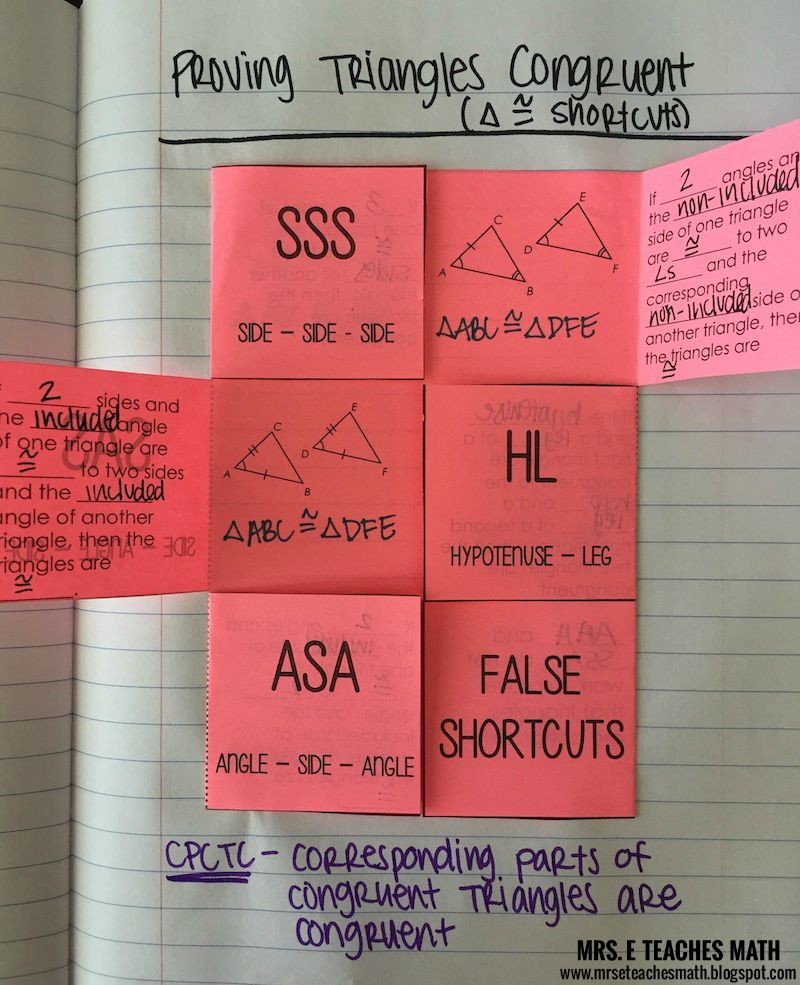 Proving Triangles Congruent
(△ ≅ shortcuts)
SSS
SIDE – SIDE - SIDE
A
C
B
D
E
F
△ABC ≅ △DFE
If 2 angles an
the non-included
side of one triangle
are ≅ to two
∠s and the
corresponding
non-included side o
another triangle, then
the triangles are
≅
2 sides and
he included angle
of one triangle are
≅ to two sides
and the included
angle of another
riangle, then the
riangles are
≅
A
C
B
D
E
F
△ABC ≅ △DFE
HL
HYPOTENUSE – LEG
ASA
ANGLE – SIDE – ANGLE
FALSE
SHORTCUTS
CPCTC - Corresponding parts of
congruent Triangles are
congruent
MRS. E TEACHES MATH
www.mrseteachesmath.blogspot.com